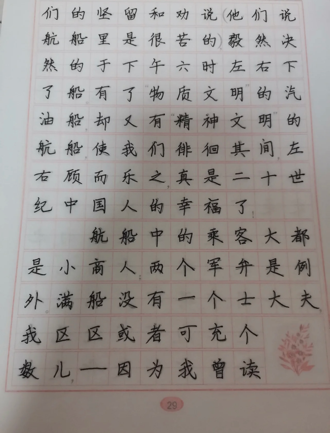 们的坚留和劝说(他们说
航船里是很苦的)毅然决
然的于下午六时左右下
了船有了物质文明的汽
油船却又有精神文明的
航船使我们徘徊其间左
右顾而乐之,真是二十世
纪中国人的幸福了
航船中的乘客大都
是小商人两个军弁是例
外满船没有一个士大夫
我区区或者可充个
数儿——因为我曾读
29